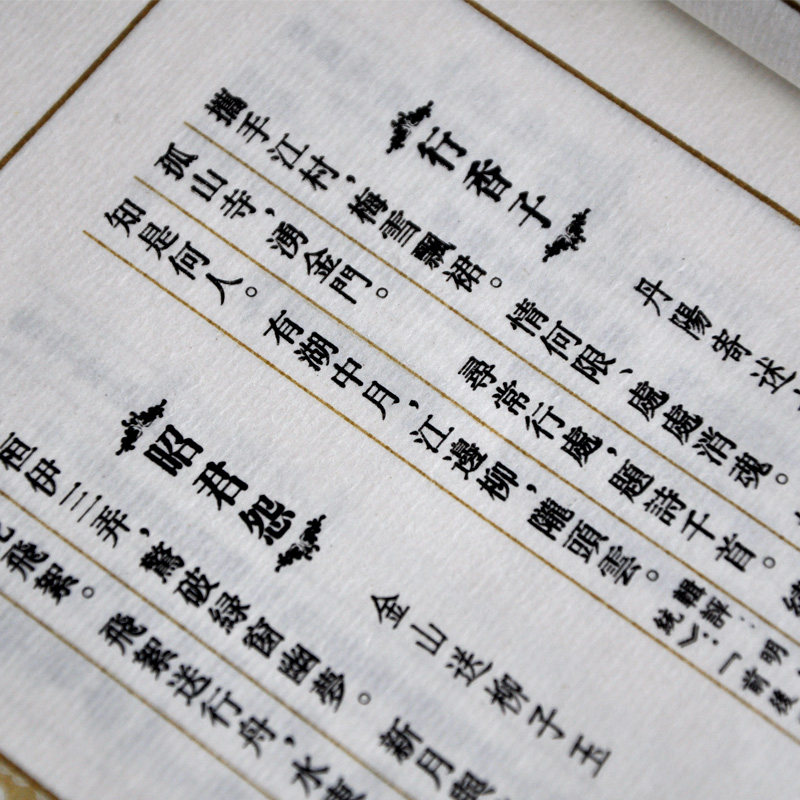 行香子 丹陽寄述
攜手江村，梅雪飄裙。情何限、處處消魂。
孤山寺，湧金門。尋常行處，題詩千首。
知是何人。有湖中月，江邊柳，隴頭雲。
輯評：明
統》：「前後
昭君怨 金山送柳子玉
桓伊三弄，驚破綠窗幽夢。新月與
飛絮。飛絮送行舟，水東